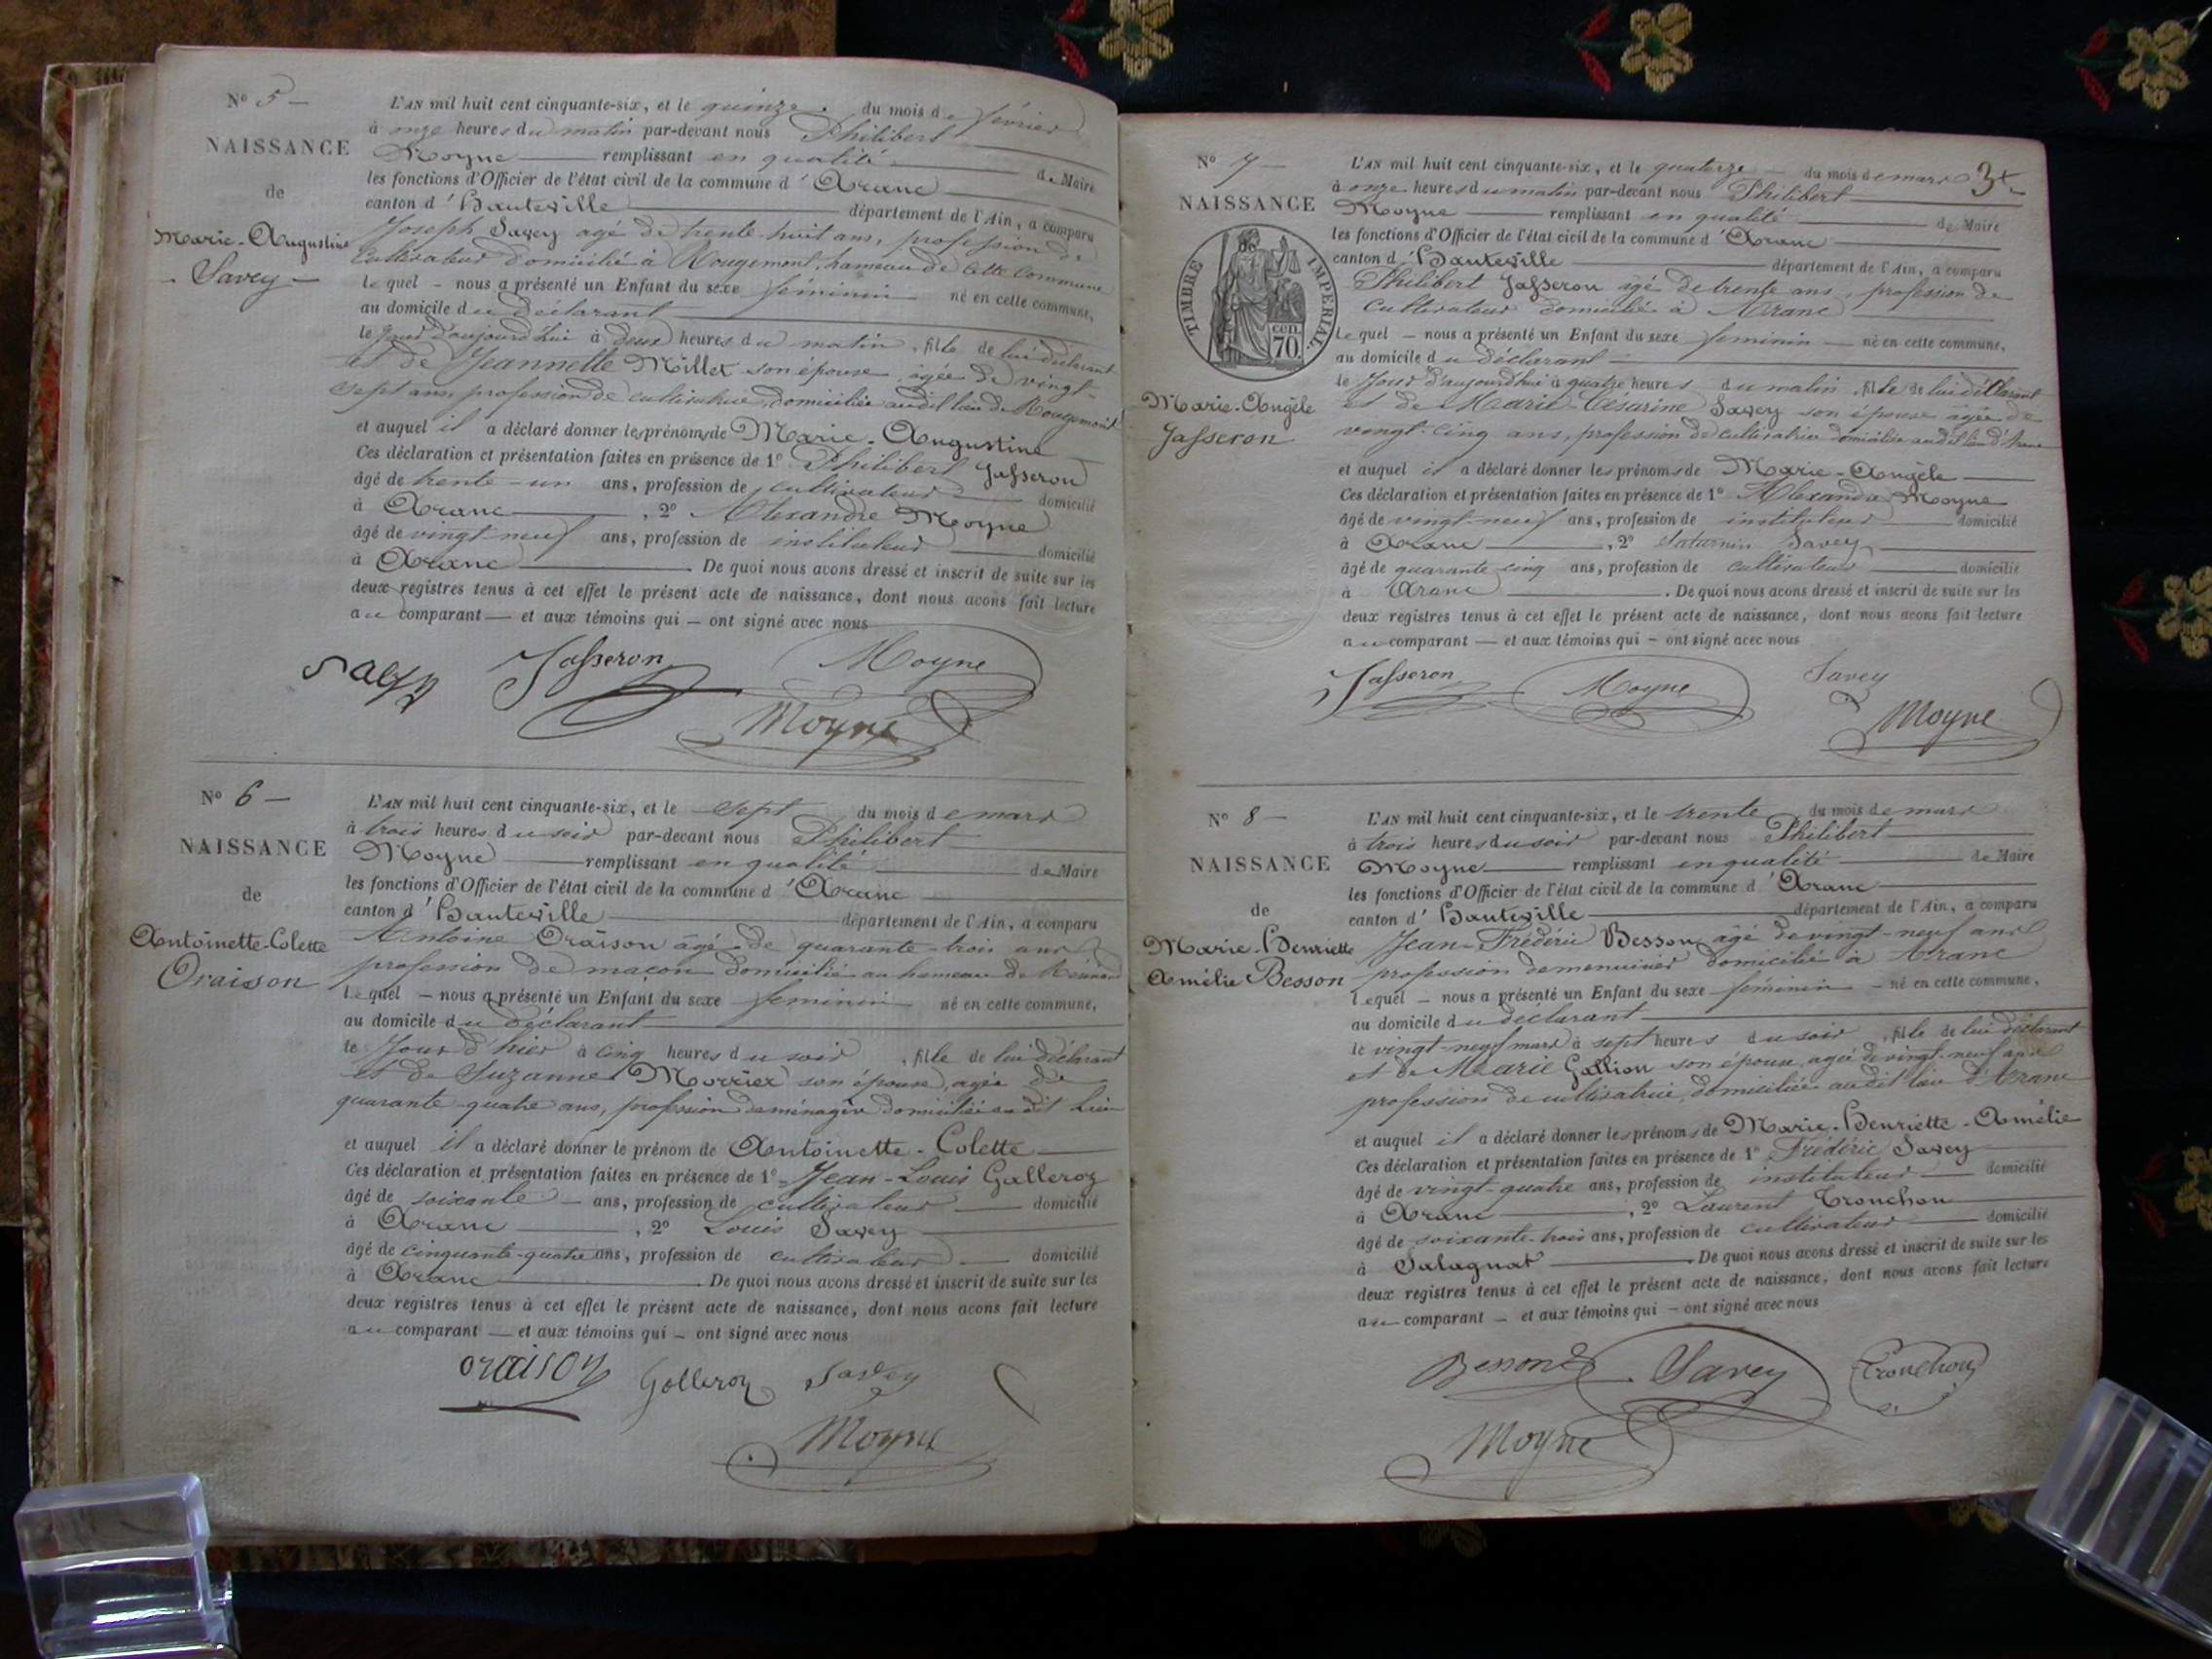 N° 5 —
NAISSANCE
de
Marie-Augustine
Savey —
L'AN mil huit cent cinquante-six, et le quinze du mois de février
à onze heures du matin par-devant nous Philibert
Moyne remplissant en qualité de Maire
les fonctions d'Officier de l'état civil de la commune d'Aranc
canton d'Hauteville département de l'Ain, a comparu
Joseph Savey agé de trente-huit ans, profession de
cultivateur domicilié à Rougemont, hameau de cette commune
lequel — nous a présenté un Enfant du sexe féminin né en cette commune,
au domicile du déclarant
le jour d'aujourd'hui à deux heures du matin, fille de lui déclarant
et de Jeannette Millet son épouse âgée de vingt-
sept ans, profession de cultivatrice, domiciliée audit lieu de Rougemont
et auquel il a déclaré donner les prénoms de Marie-Augustine
Ces déclaration et présentation faites en présence de 1° Philibert Jasseron
âgé de trente-un ans, profession de cultivateur domicilié
à Aranc, 2° Alexandre Moyne
âgé de vingt neuf ans, profession de instituteur domicilié
à Aranc. De quoi nous avons dressé et inscrit de suite sur les
deux registres tenus à cet effet le présent acte de naissance, dont nous avons fait lecture
au comparant — et aux témoins qui — ont signé avec nous
Savey Jasseron Moyne
Moyne
N° 6 —
NAISSANCE
de
Antoinette-Colette
Oraison
L'AN mil huit cent cinquante-six, et le sept du mois de mars
à trois heures du soir par-devant nous Philibert
Moyne remplissant en qualité de Maire
les fonctions d'Officier de l'état civil de la commune d'Aranc
canton d'Hauteville département de l'Ain, a comparu
Antoine Oraison âgé de quarante-trois ans
profession de maçon domicilié au hameau de
lequel — nous a présenté un Enfant du sexe féminin né en cette commune,
au domicile du déclarant
le jour d'hier à cinq heures du soir, fille de lui déclarant
et de Suzanne son épouse, agée de
quarante-quatre ans, profession de ménagère domiciliée audit lieu
et auquel il a déclaré donner le prénom de Antoinette-Colette
Ces déclaration et présentation faites en présence de 1° Jean-Louis Galleroz
âgé de soixante — ans, profession de cultivateur domicilié
à Aranc, 2° Louis Savey
âgé de cinquante-quatre ans, profession de cultivateur domicilié
à Aranc. De quoi nous avons dressé et inscrit de suite sur les
deux registres tenus à cet effet le présent acte de naissance, dont nous avons fait lecture
au comparant — et aux témoins qui — ont signé avec nous
oraison Galleroz Savey
Moyne
3
N° 7 —
NAISSANCE
TIMBRE IMPERIAL
cen.
70.
Marie-Angèle
Jasseron
L'AN mil huit cent cinquante-six, et le quatorze du mois de mars
à onze heures du matin par-devant nous Philibert
Moyne remplissant en qualité de Maire
les fonctions d'Officier de l'état civil de la commune d'Aranc
canton d'Hauteville département de l'Ain, a comparu
Philibert Jasseron âgé de trente ans, profession de
cultivateur domicilié à Aranc
lequel — nous a présenté un Enfant du sexe féminin — né en cette commune,
au domicile du déclarant
le jour d'aujourd'hui à quatre heures du matin, fille de lui déclarant
et de Marie-Césarine Savey son épouse âgée de
vingt-cinq ans, profession de cultivatrice domiciliée audit lieu d'Aranc
et auquel il a déclaré donner les prénoms de Marie-Angèle
Ces déclaration et présentation faites en présence de 1° Alexandre Moyne
âgé de vingt-neuf ans, profession de instituteur domicilié
à Aranc, 2° Saturnin Savey
âgé de quarante cinq ans, profession de cultivateur domicilié
à Aranc. De quoi nous avons dressé et inscrit de suite sur les
deux registres tenus à cet effet le présent acte de naissance, dont nous avons fait lecture
au comparant — et aux témoins qui — ont signé avec nous
Jasseron Moyne Savey
Moyne
N° 8 —
NAISSANCE
de
Marie-Henriette
Amélie Besson
L'AN mil huit cent cinquante-six, et le trente du mois de mars
à trois heures du soir par-devant nous Philibert
Moyne remplissant en qualité de Maire
les fonctions d'Officier de l'état civil de la commune d'Aranc
canton d'Hauteville département de l'Ain, a comparu
Jean-Frédéric Besson âgé de vingt-neuf ans
profession de menuisier domicilié à Aranc
lequel — nous a présenté un Enfant du sexe féminin — né en cette commune,
au domicile du déclarant
le vingt-neuf mars à sept heures du soir, fille de lui déclarant
et de Marie Gallion son épouse, agée de vingt-neuf ans
profession de cultivatrice, domiciliée audit lieu d'Aranc
et auquel il a déclaré donner les prénoms de Marie-Henriette-Amélie
Ces déclaration et présentation faites en présence de 1° Frédéric Savey
âgé de vingt-quatre ans, profession de instituteur domicilié
à Aranc, 2° Laurent Tronchon
âgé de soixante-trois ans, profession de cultivateur domicilié
à Salagnat. De quoi nous avons dressé et inscrit de suite sur les
deux registres tenus à cet effet le présent acte de naissance, dont nous avons fait lecture
au comparant — et aux témoins qui — ont signé avec nous
Besson Savey Tronchon
Moyne